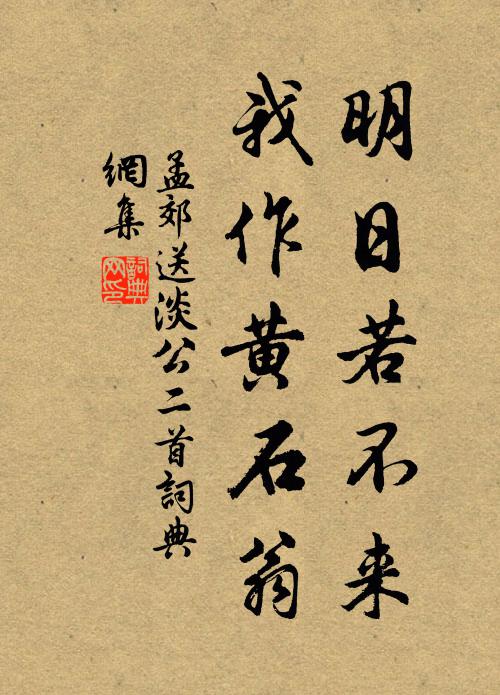 明日若不来
我作黄石翁
孟郊送淡公二首詞典
網集
詞典
网印